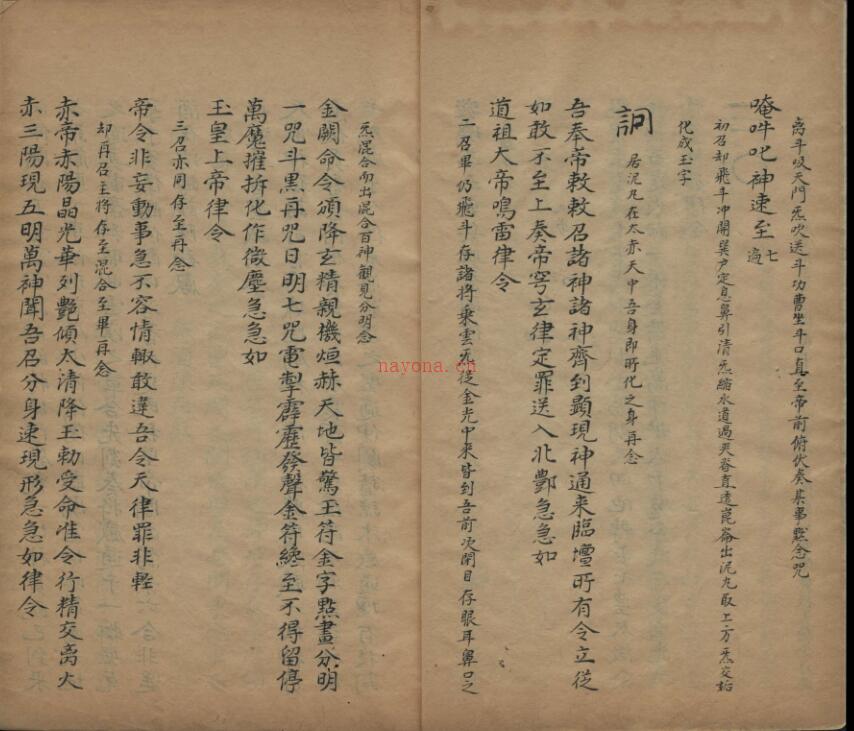 离斗吸天門炁吹送斗功曹坐斗口直至帝前俯伏奏某事默念咒
唵吽吒神速至七遍
初召却飛斗冲開巽户定息鼻引清炁縮水道過夾脊直透崑崙出泥丸取上方炁交始
化成玉字
詗居泥丸在太赤天中吾身即所化之身再念
吾奉帝敕敕召諸神諸神齊到顯現神通来臨壇所有令立從
如敢不至上奏帝穹玄律定罪送入北酆急急如
道祖大帝鳴雷律令
二召畢仍飛斗存諸將乘雲炁從金光中来皆到吾前次閉目存眼耳鼻口之
炁混合而出混合百神觀見分明念
金闕命令頒降玄精親機烜赫天地皆驚玉符金字點畫分明
一咒斗黑再咒日明七咒電掣霹靂發聲金符總至不得留停
萬魔摧拆化作微塵急急如
玉皇上帝律令
三召亦同存至再念
帝令非妄動事急不容情輙敢違吾令天律罪非輕
却再召主將存至混合至畢再念
赤帝赤陽晶光華列艷傾太清降玉勅受命准令行精交离火
赤三陽現五明萬神聞吾召分身速現形急急如律令
nayona.cn